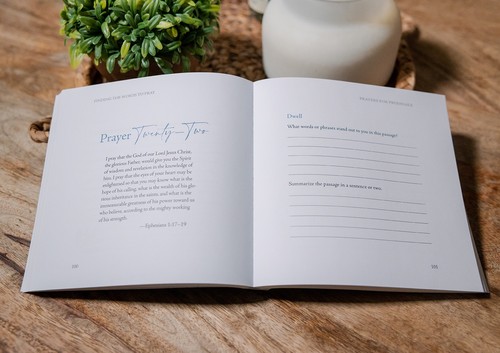 Prayer Twenty-Two
I pray that the God of our Lord Jesus Christ,
the glorious Father, would give you the Spirit
of wisdom and revelation in the knowledge of
him. I pray that the eyes of your heart may be
enlightened so that you may know what is the
hope of his calling, what is the wealth of his glo-
rious inheritance in the saints, and what is the
immeasurable greatness of his power toward us
who believe, according to the mighty working
of his strength.
—Ephesians 1:17–19
Dwell
What words or phrases stand out to you in this passage?
Summarize the passage in a sentence or two.